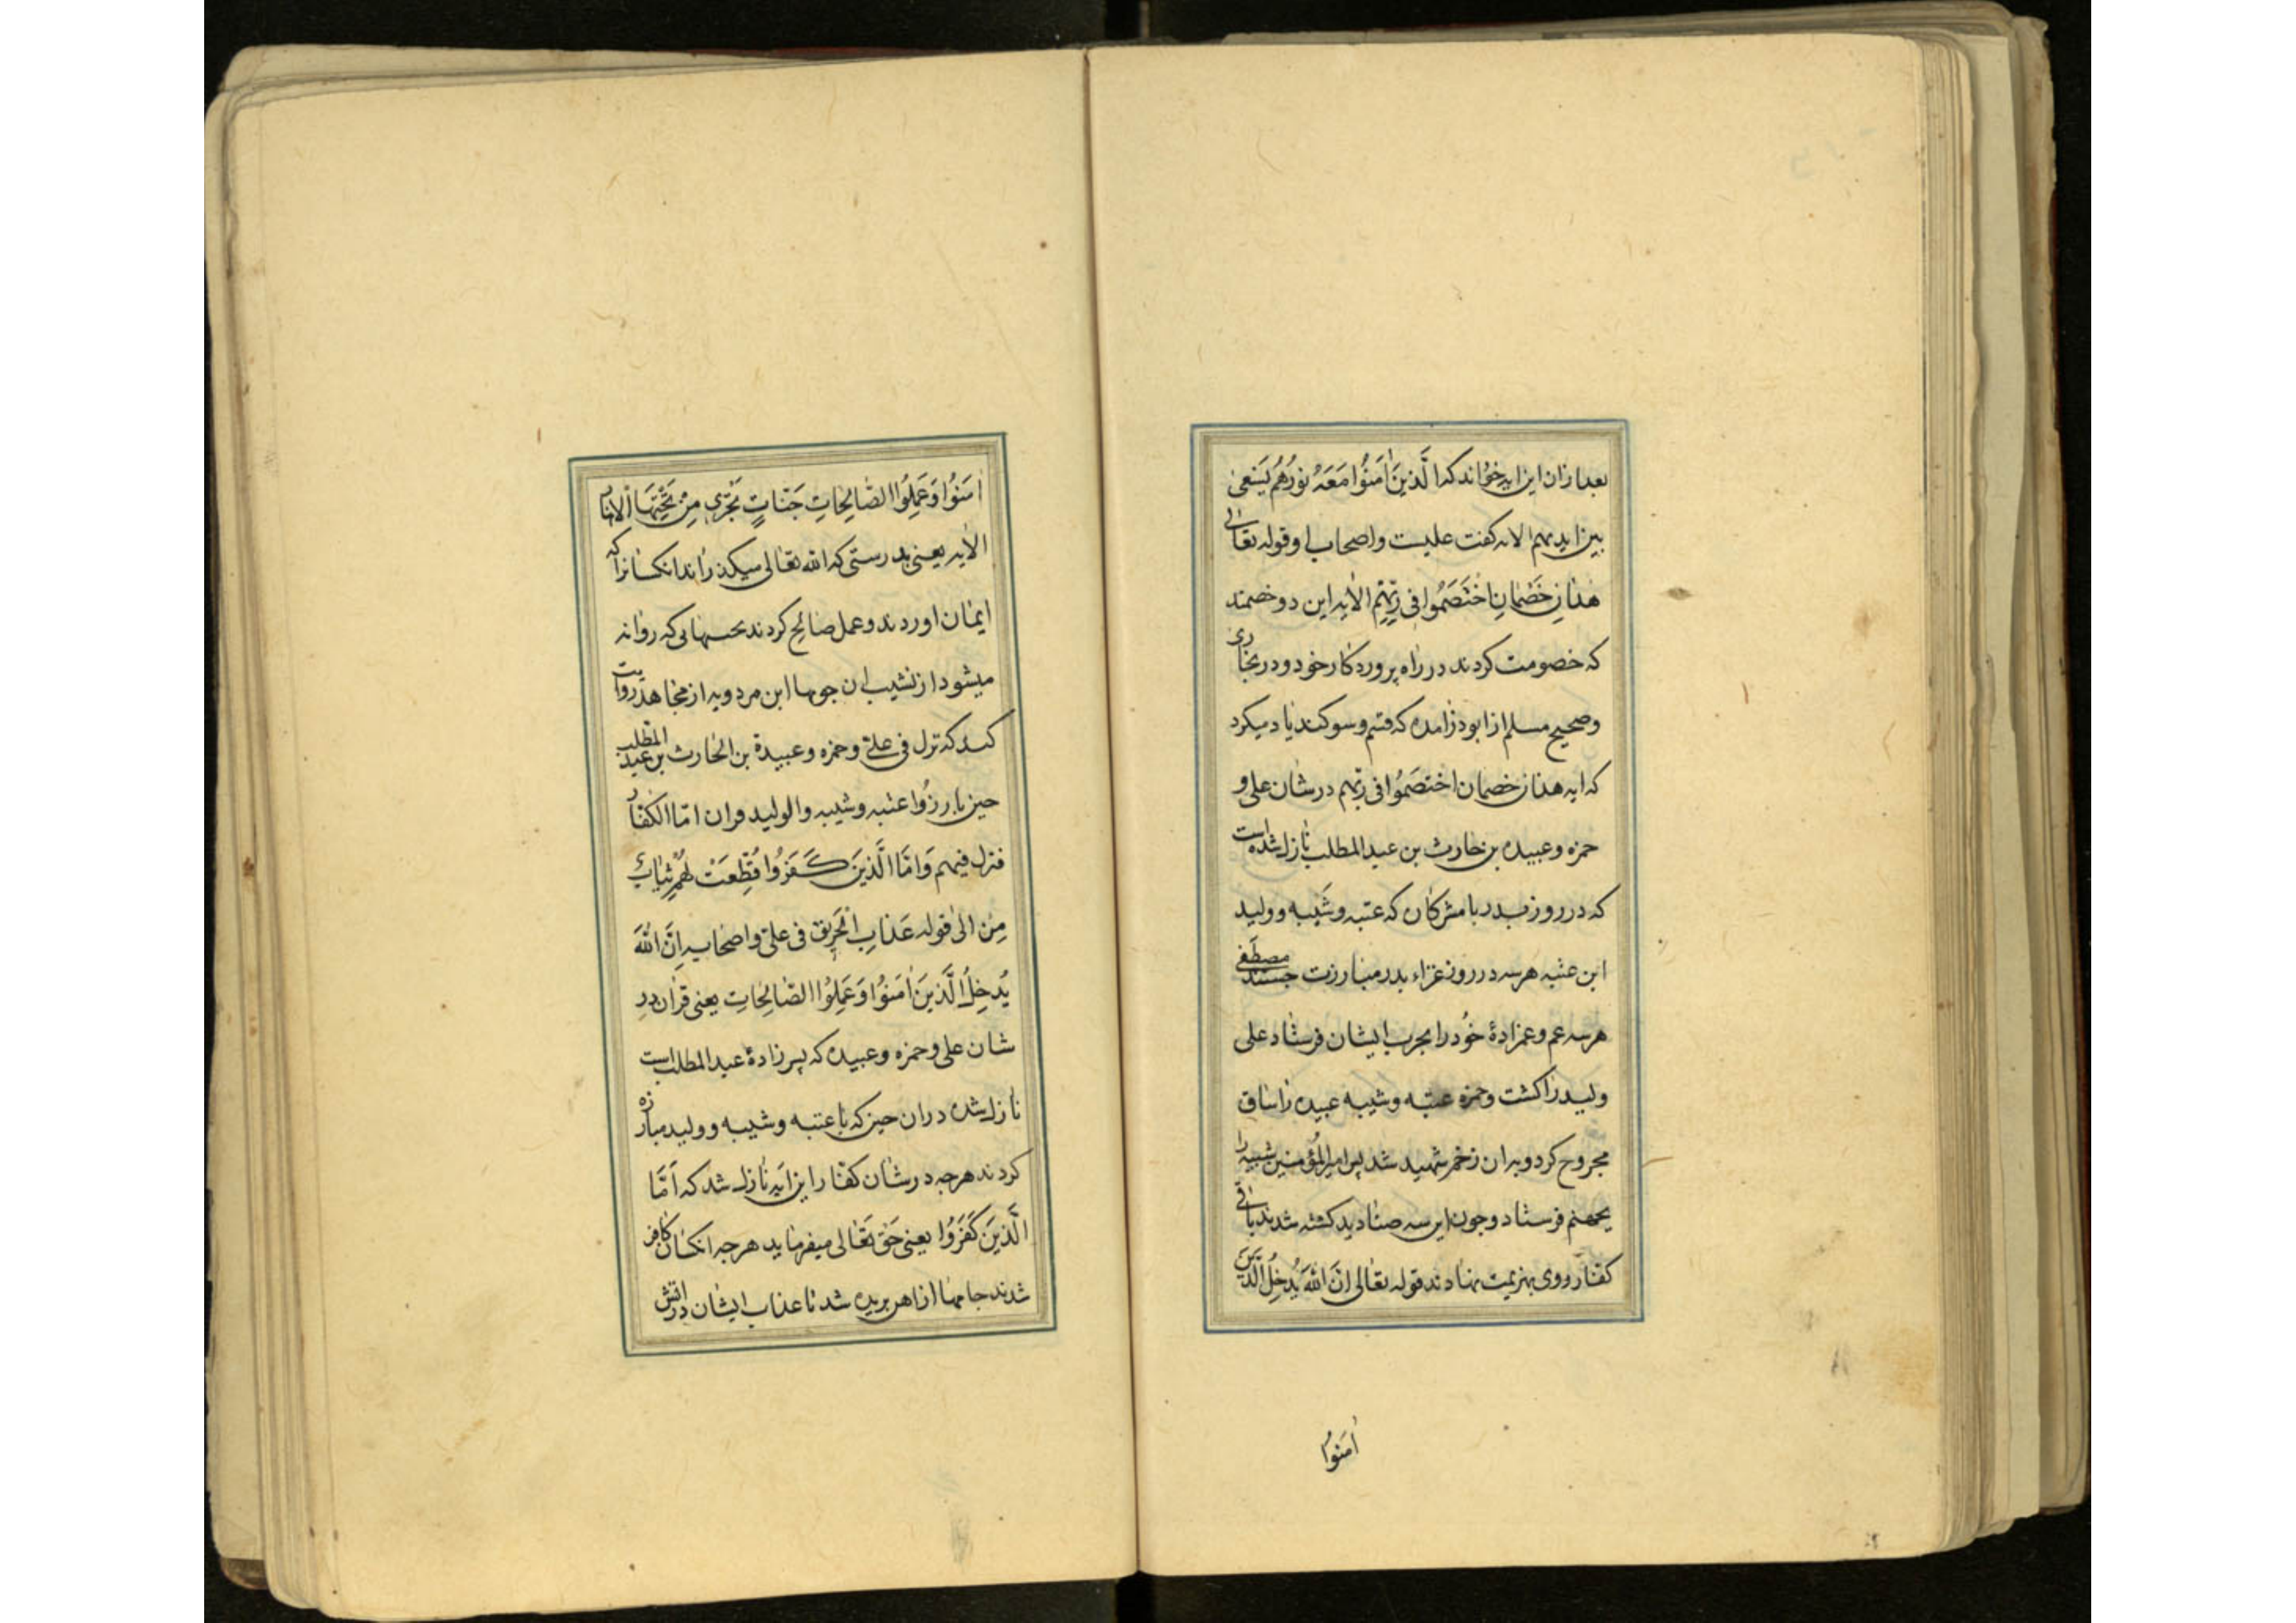 بعد ازان این ایه خواند که الَّذینَ اٰمَنُوا مَعَهُ نورُهُم یَسْعی
بین ایدیهم الایه کفت علیست واصحاب او قوله تعالی
هٰذانِ خَصْمانِ اخْتَصَمُوا فی رَبِّهِم الایه این دو خصمند
که خصومت کردند در راه پروردکار خود و در بخاری
وصحیح مسلم از ابوذر امده که قسم وسوکند یاد میکرد
که ایه هذان خصمان اختصَمُوا فی ربّهم در شان علی و
حمزه وعبیده بن حارث بن عبدالمطلب نازل شده است
که در روز بدر با مشرکان که عتبه وشَیبه وولید
ابن عتبه هرسه در روز غزاء بدر مبارزت جستند مصطَفی
هرسه عم وعمزادهٔ خُود را بحرب ایشان فرستاد علی
ولید را کشت وحمزه عتبه وشیبه عبیده را ساق
مجروح کرد وبدان زخم شهید شد پس امیرالمُؤمنین شیبه را
بجهنم فرستاد وچون این سه صنادید کشته شدند باقی
کفّار رووی بهزیمت نهادند قوله تعالی انَّ اللهَ یُدخِلُ الَّذینَ
اٰمَنُوا
اٰمَنُوا وَعَمِلُوا الصّالِحاتِ جَنّاتٍ تَجْرِی مِنْ تَحْتِهَا الْاَنهار
الایه یعنی بدرستی که الله تعالی میکذراند انکسانرا که
ایمان اوردند وعمل صالح کردند بحسنهایی که روانه
میشود از نشیب ان جویها ابن مردویه از مجاهد روایت
کند که نزل فی علیّ وحمزه وعبیدة بن الحارث بن عبد المطّلب
حین بارزُوا عتبه وشیبه والولید وان امّا الکفّار
فنزل فیهم وَامّا الَّذینَ کَفَرُوا قُطِّعَتْ لَهُمْ ثیابٌ
مِن الیٰ قوله عَذابِ الْحَرِیق فی علیّ واصحابه اِنَّ اللهَ
یُدخِلُ الَّذینَ اٰمَنوُا وَعَمِلُوا الصّالِحاتِ یعنی قرآن در
شان علی وحمزه وعبیده که پسر زادهٔ عبدالمطلب است
نازل شده دران حین که با عتبه وشیبه وولید مبارزه
کردند هرچه در شان کفّار این ایه نازل شد که اَمّا
الَّذینَ کَفَرُوا یعنی حَق تَعٰالی میفرماید هرچه انکسان کافر
شدند جامها از اهر بریده شد تا عذاب ایشان در اتش